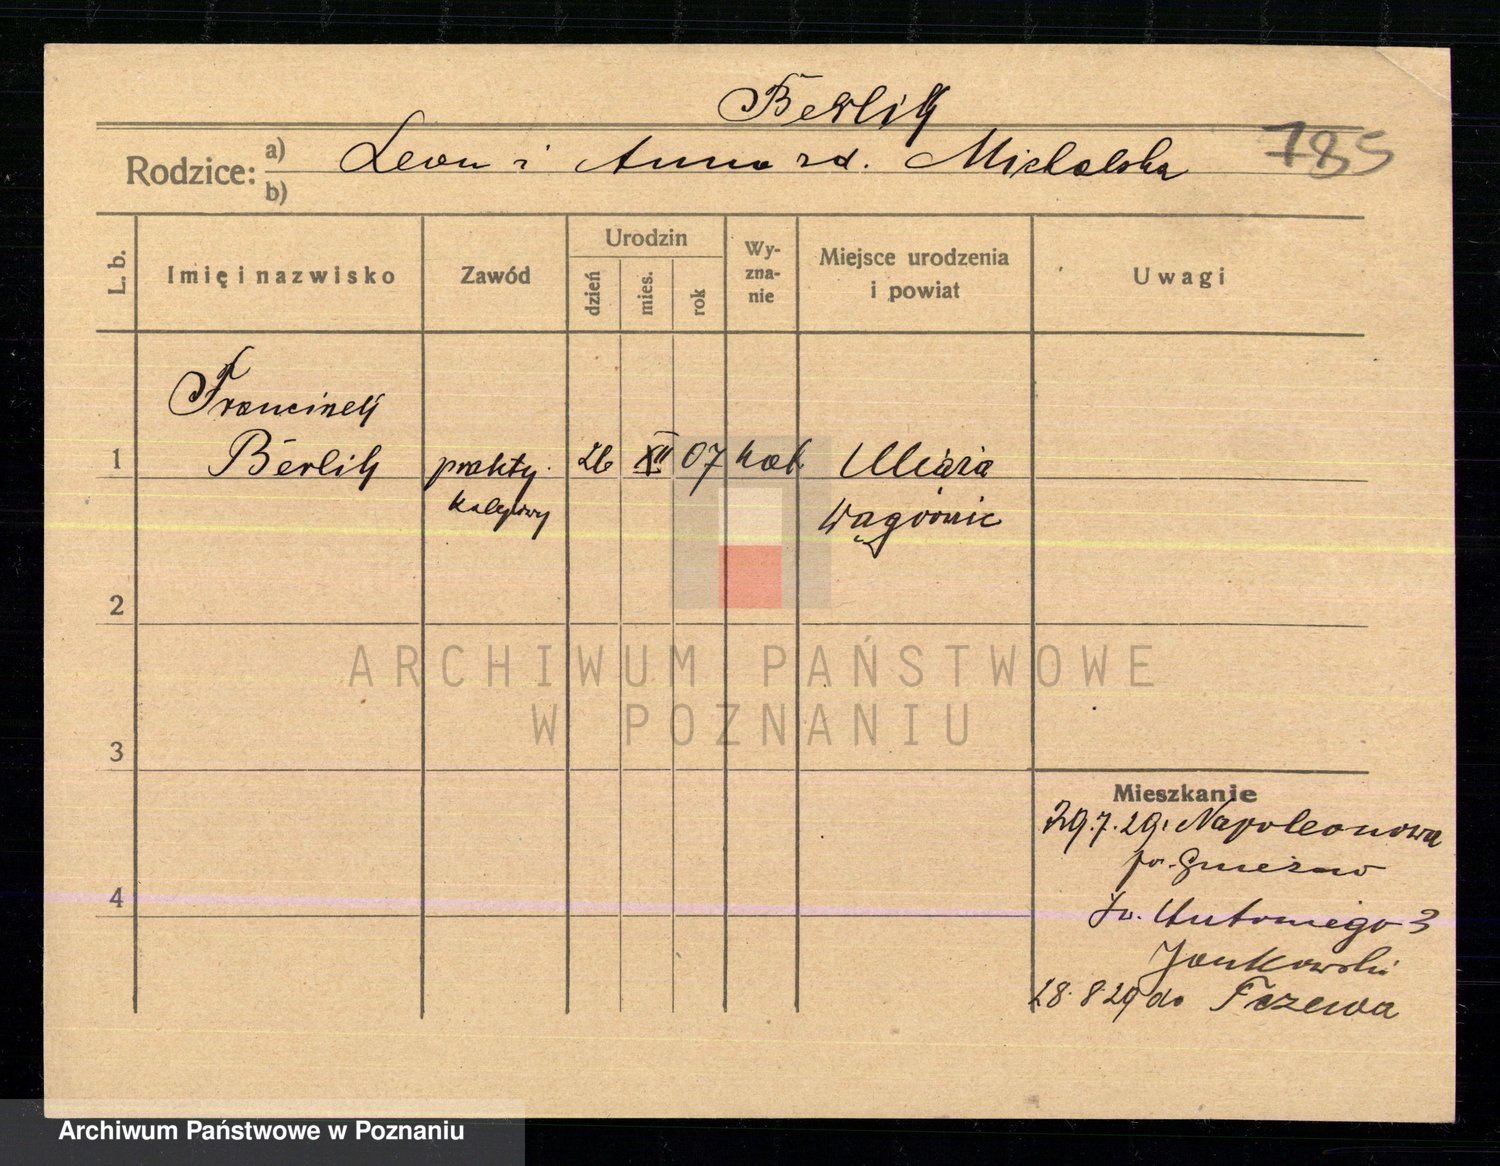 Berlik
785
Rodzice: a) Leon i Anna zd. Michalska
b)
L. b. Imię i nazwisko Zawód Urodzin dzień mies. rok Wyznanie Miejsce urodzenia i powiat Uwagi
Franciszek
1 Berlik prakty. 26 XII 07 kat. Miaza
Wągrowiec
2
3
4
Mieszkanie
29.7.29. Napoleonowo
po. Gniezno
św. Antoniego 3
Jankowski
28.8.29 do Tczewa
ARCHIWUM PAŃSTWOWE
W POZNANIU
Archiwum Państwowe w Poznaniu